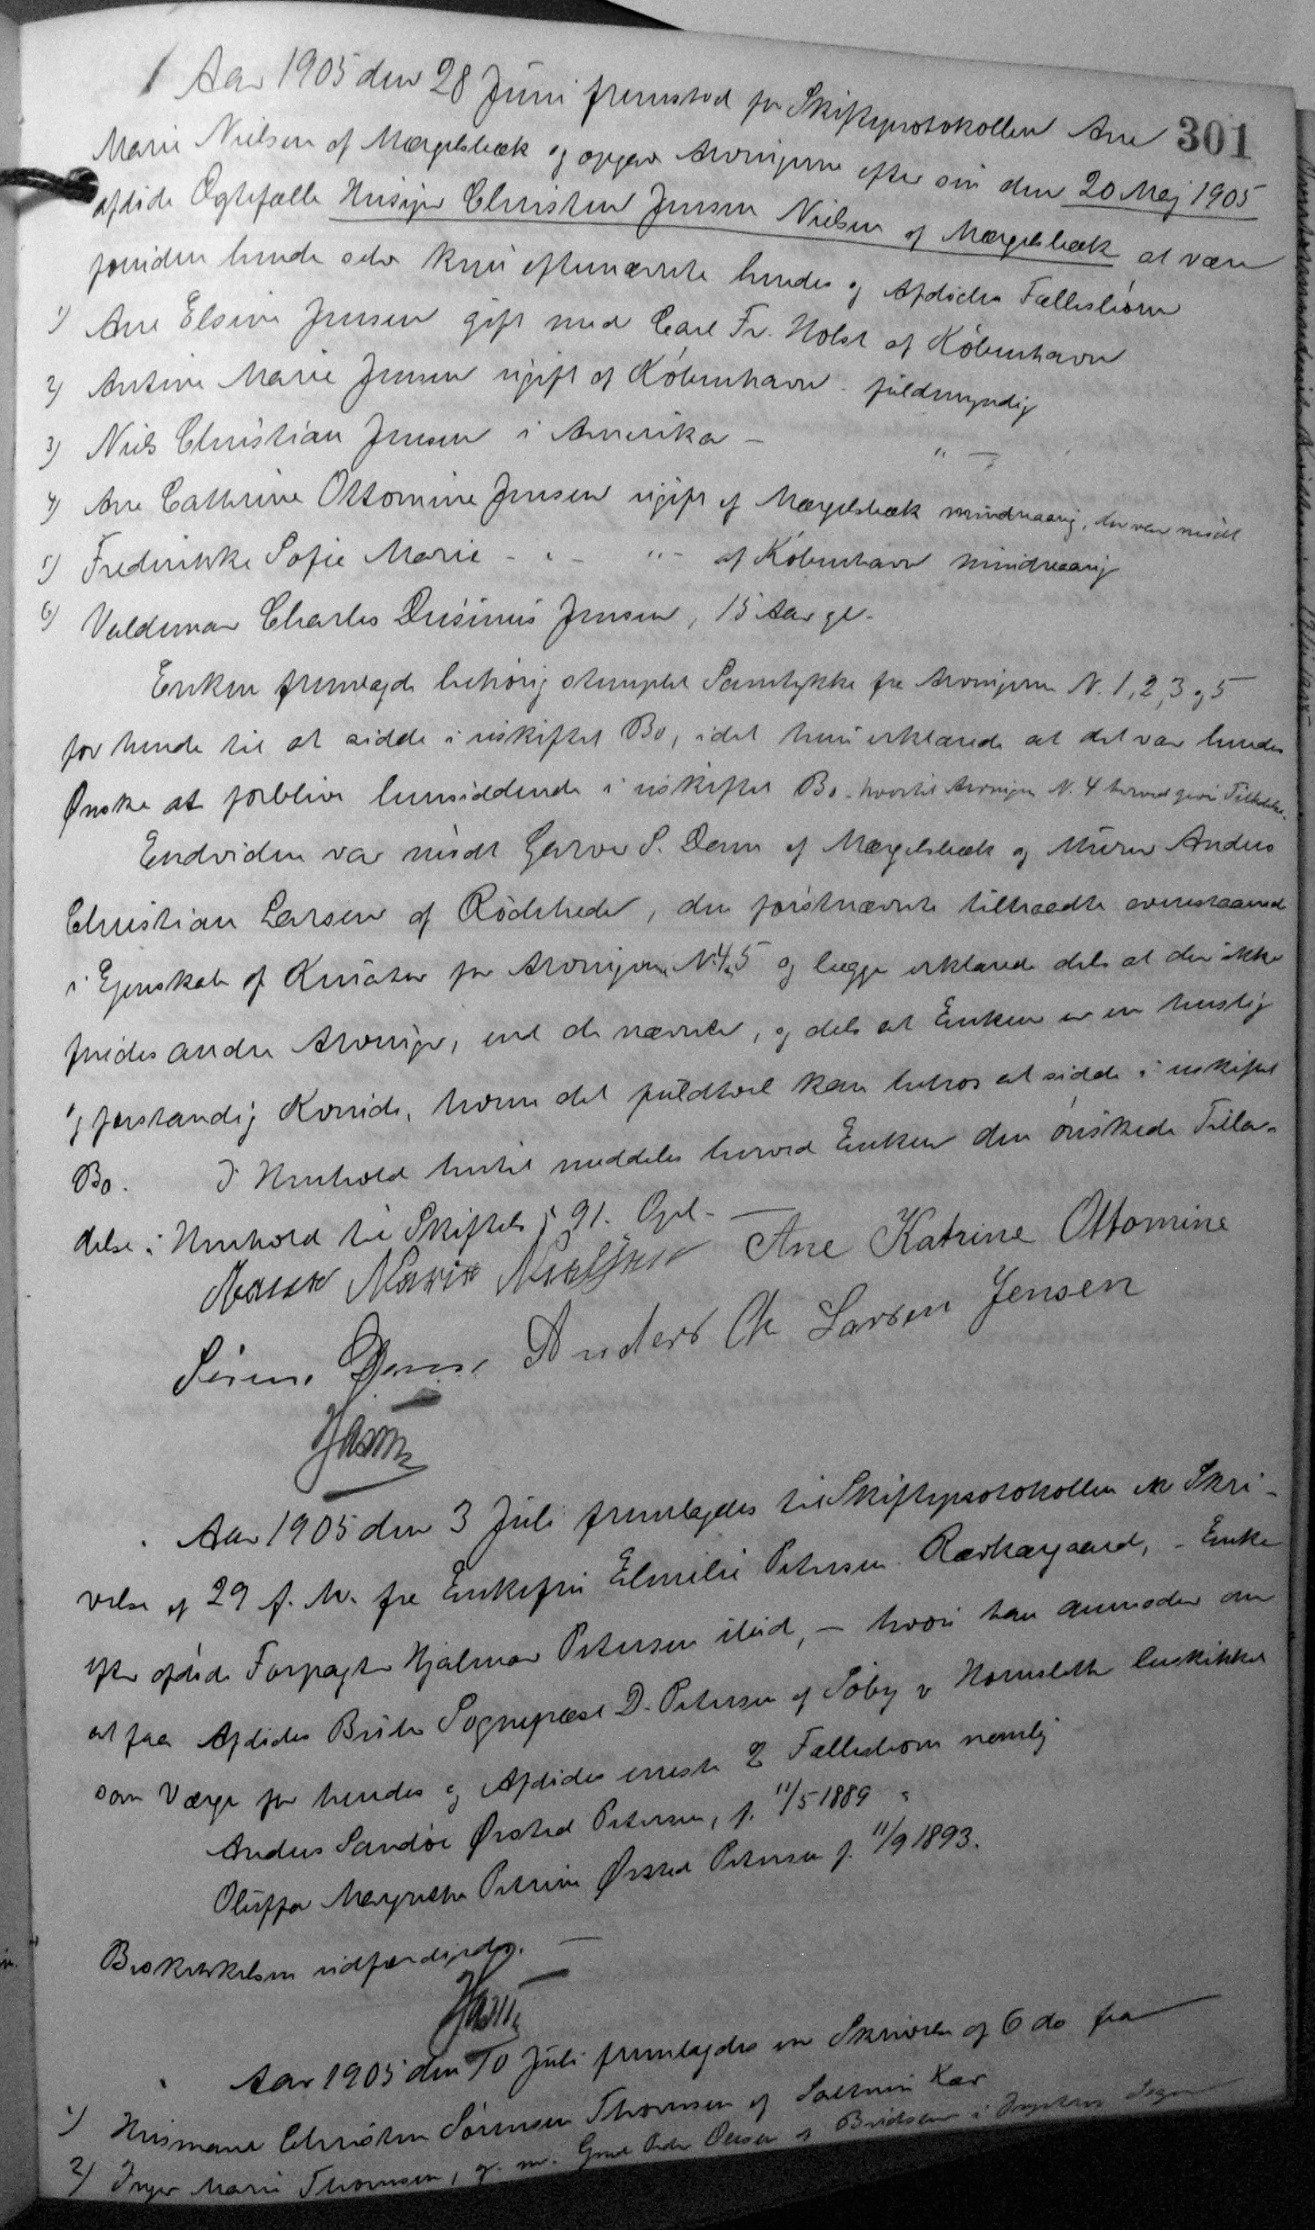 Aar 1905 den 28 Juni fremstod for Skifteprotokollen Ane
301
Marie Nielsen af Mergelsbæk og opgav Arvingerne efter sin den 20 Maj 1905
afdøde Ægtefælle Husejer Christen Jensen Nielsen af Mergelsbæk at være
foruden hende selv kun efternævnte hendes og Afdødes Fællesbørn
1) Ane Elsine Jensen gift med Carl Fr. Holst af København
2) Antine Marie Jensen ugift af København - fuldmyndig
3) Niels Christian Jensen i Amerika - " -
4) Ane Cathrine Ottomine Jensen ugift af Mergelsbæk mindreaarig, der var mødt
5) Frederikke Sofie Marie - " - " - af København mindreaarig
6) Valdemar Charles Jensen, 15 Aar gl.
Enken fremlagde behørig stemplet Samtykke fra Arvingerne N. 1, 2, 3 og 5
for hende til at sidde i uskiftet Bo, idet hun erklærede at det var hendes
Ønske at forblive hensiddende i uskiftet Bo - hvortil Arvingen N. 4 herved gav Tilladelse.
Endvidere var mødt Garver S. Dam af Mergelsbæk og Murer Anders
Christian Larsen af Rødslede, den førstnævnte tiltraadte ovenstaaende
i Egenskab af Kurator for Arvingerne N. 4, 5 og begge erklærede dels at der ikke
findes andre Arvinger, end de nævnte, og dels at Enken er en huslig
og forstandig Kvinde, hvem det fuldtvel kan betros at sidde i uskiftet
Bo. I Henhold hertil meddeles herved Enken den ønskede Tilla-
delse i Henhold til Skiftel. § 91. Opl. -
Ane Marie Nielsen Ane Katrine Ottomine
Sørens Dam. Anders Chr Larsen Jensen
Aar 1905 den 3 Juli fremlagdes til Skifteprotokollen en Skri-
velse af 29 f. M. fra Enkefru Elmilie Petersen Rærkærgaard, - Enke
efter afdøde Forpagter Hjalmar Petersen ibid, - hvori hun anmoder om
at faa Afdødes Broder Sognepræst D. Petersen af Søby v Hornslet beskikket
som Værge for hendes og Afdødes eneste 2 Fællesbørn nemlig
Anders Sandøe Ørsted Petersen, f. 11/5 1889 "
Oluffa Margrethe Petrine Ørsted Petersen f. 11/9 1893.
Beskikkelsen udfærdiget. -
Aar 1905 den 10 Juli fremlagdes en Skrivelse af 6 ds fra
1) Husmand Christen Sørensen Thomsen af Kær
2) Inger Marie Thomsen, g. m. Gmd Peder Olesen af i Sogn